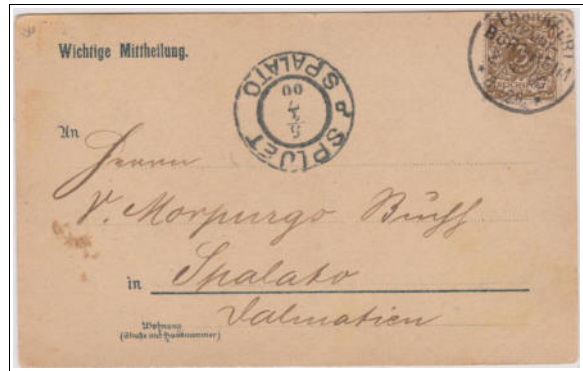 Wichtige Mittheilung.
SPLJET
SPALATO
5
7
00
An
Herrn
V. Morpurgo
in Spalato
Dalmatien
Wohnung
(Straße und Hausnummer)